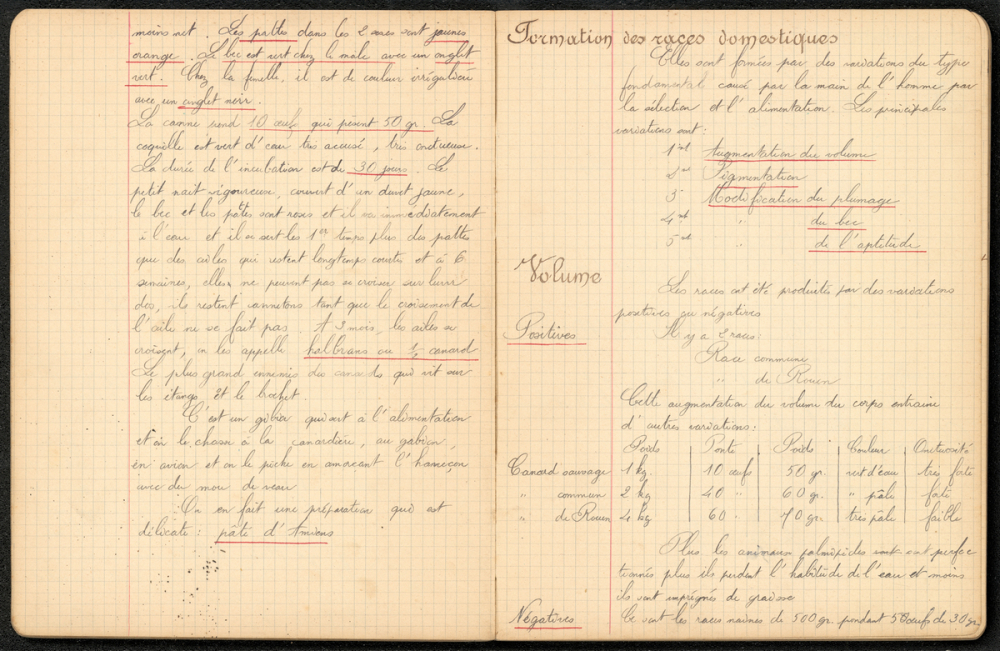 moins net. Les pattes dans les 2 sexes sont jaunes
orange. Le bec est vert chez le mâle avec un onglet
vert. Chez la femelle, il est de couleur irrégulière
avec un onglet noir.
La canne pond 10 œufs qui pèsent 50 gr. La
coquille est vert d'eau très accusé, très onctueuse.
La durée de l'incubation est de 30 jours. Le
petit naît vigoureux, couvert d'un duvet jaune,
le bec et les pattes sont roses et il va immédiatement
à l'eau et il se sert les 1ers temps plus des pattes
que des ailes qui restent longtemps courtes et à 6
semaines, elles ne peuvent pas se croiser sur leur
dos, ils restent cannetons tant que le croisement de
l'aile ne se fait pas. A 3 mois, les ailes se
croisent, on les appelle halbrans ou ½ canard
Le plus grand ennemis des canards qui vit sur
les étangs est le brochet.
C'est un gibier qui sert à l'alimentation
et on le chasse à la canardière, au gabion,
en avion et on le pêche en amorçant l'hameçon
avec du mou de veau
On en fait une préparation qui est
délicate : pâté d'Amiens
Formation des races domestiques
Elles sont formées par des variations du type
fondamental causé par la main de l'homme par
la sélection et l'alimentation. Les principales
variations sont :
1ent Augmentation du volume
2ent Pigmentation
3° Modification du plumage
4ent " du bec
5ent " de l'aptitude
Volume
Les races ont été produites par des variations
positives ou négatives
Positives
Il y a 2 races :
Race commune
" de Rouen
Cette augmentation du volume du corps entraine
d'autres variations :
Poids Ponte Poids Couleur Onctuosité
Canard sauvage 1 kg 10 œufs 50 gr. vert d'eau très forte
" commun 2 kg 40 " 60 gr. " pâle forte
" de Rouen 4 kg 60 " 70 gr. très pâle faible
Plus les animaux palmipèdes sont perfec
tionnés plus ils perdent l'habitude de l'eau et moins
ils sont imprégnés de graisse
Négatives Ce sont les races naines de 500 gr. pondant 50 œufs de 30 gr